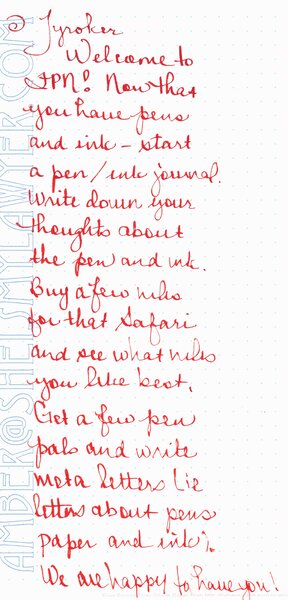 @ Tyroker
Welcome to
FPN! Now that
you have pens
and ink - start
a pen/ink journal.
Write down your
thoughts about
the pen and ink.
Buy a few nibs
for that Safari
and see what nibs
you like best.
Get a few pen
pals and write
meta letters (ie
letters about pens
paper and ink).
We are happy to have you!
AMBER@SHEISMYLAWYER.COM